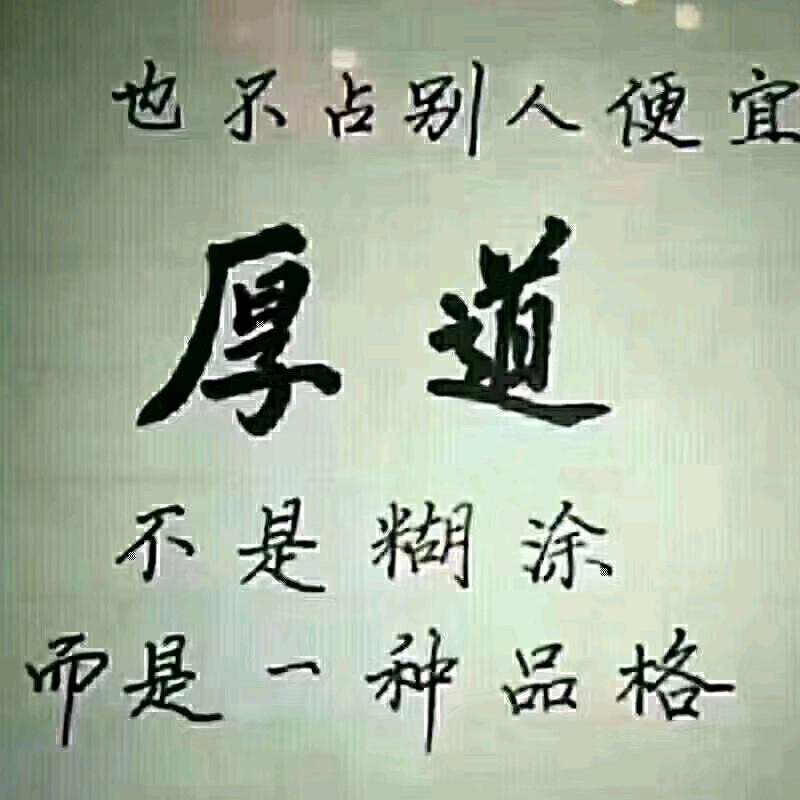 也不占别人便宜
厚道
不是糊涂
而是一种品格